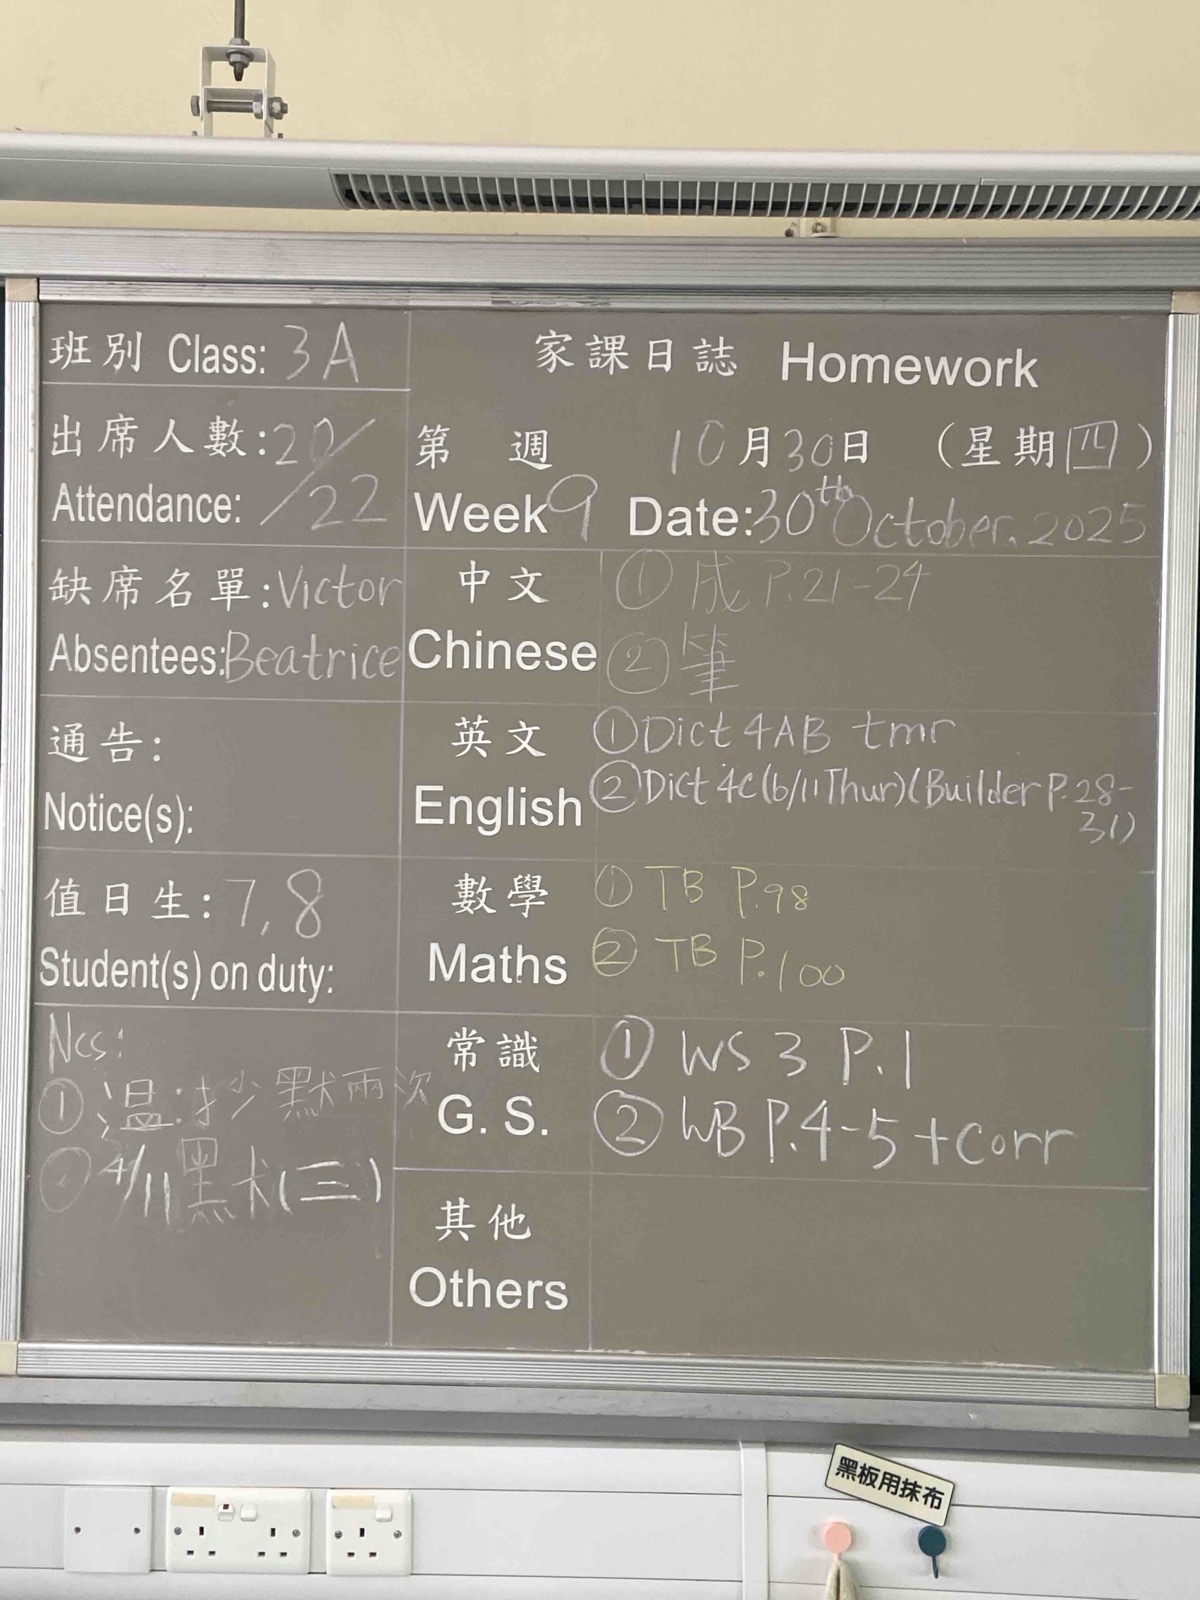 班別 Class: 3A
家課日誌 Homework
出席人數: 20/
Attendance: /22
第 週 10月30日 (星期四)
Week 9 Date: 30th October. 2025
缺席名單: Victor
Absentees: Beatrice
中文 ① 成 P.21-24
Chinese ② 筆
通告:
Notice(s):
英文 ① Dict 4AB tmr
English ② Dict 4C (6/11 Thur) (Builder P.28-
31)
值日生: 7, 8
Student(s) on duty:
數學 ① TB P.98
Maths ② TB P.100
Ncs:
① 溫:抄默兩次
② 4/11 默(三)
常識 ① WS 3 P.1
G. S. ② WB P.4-5 + corr
其他
Others
黑板用抹布